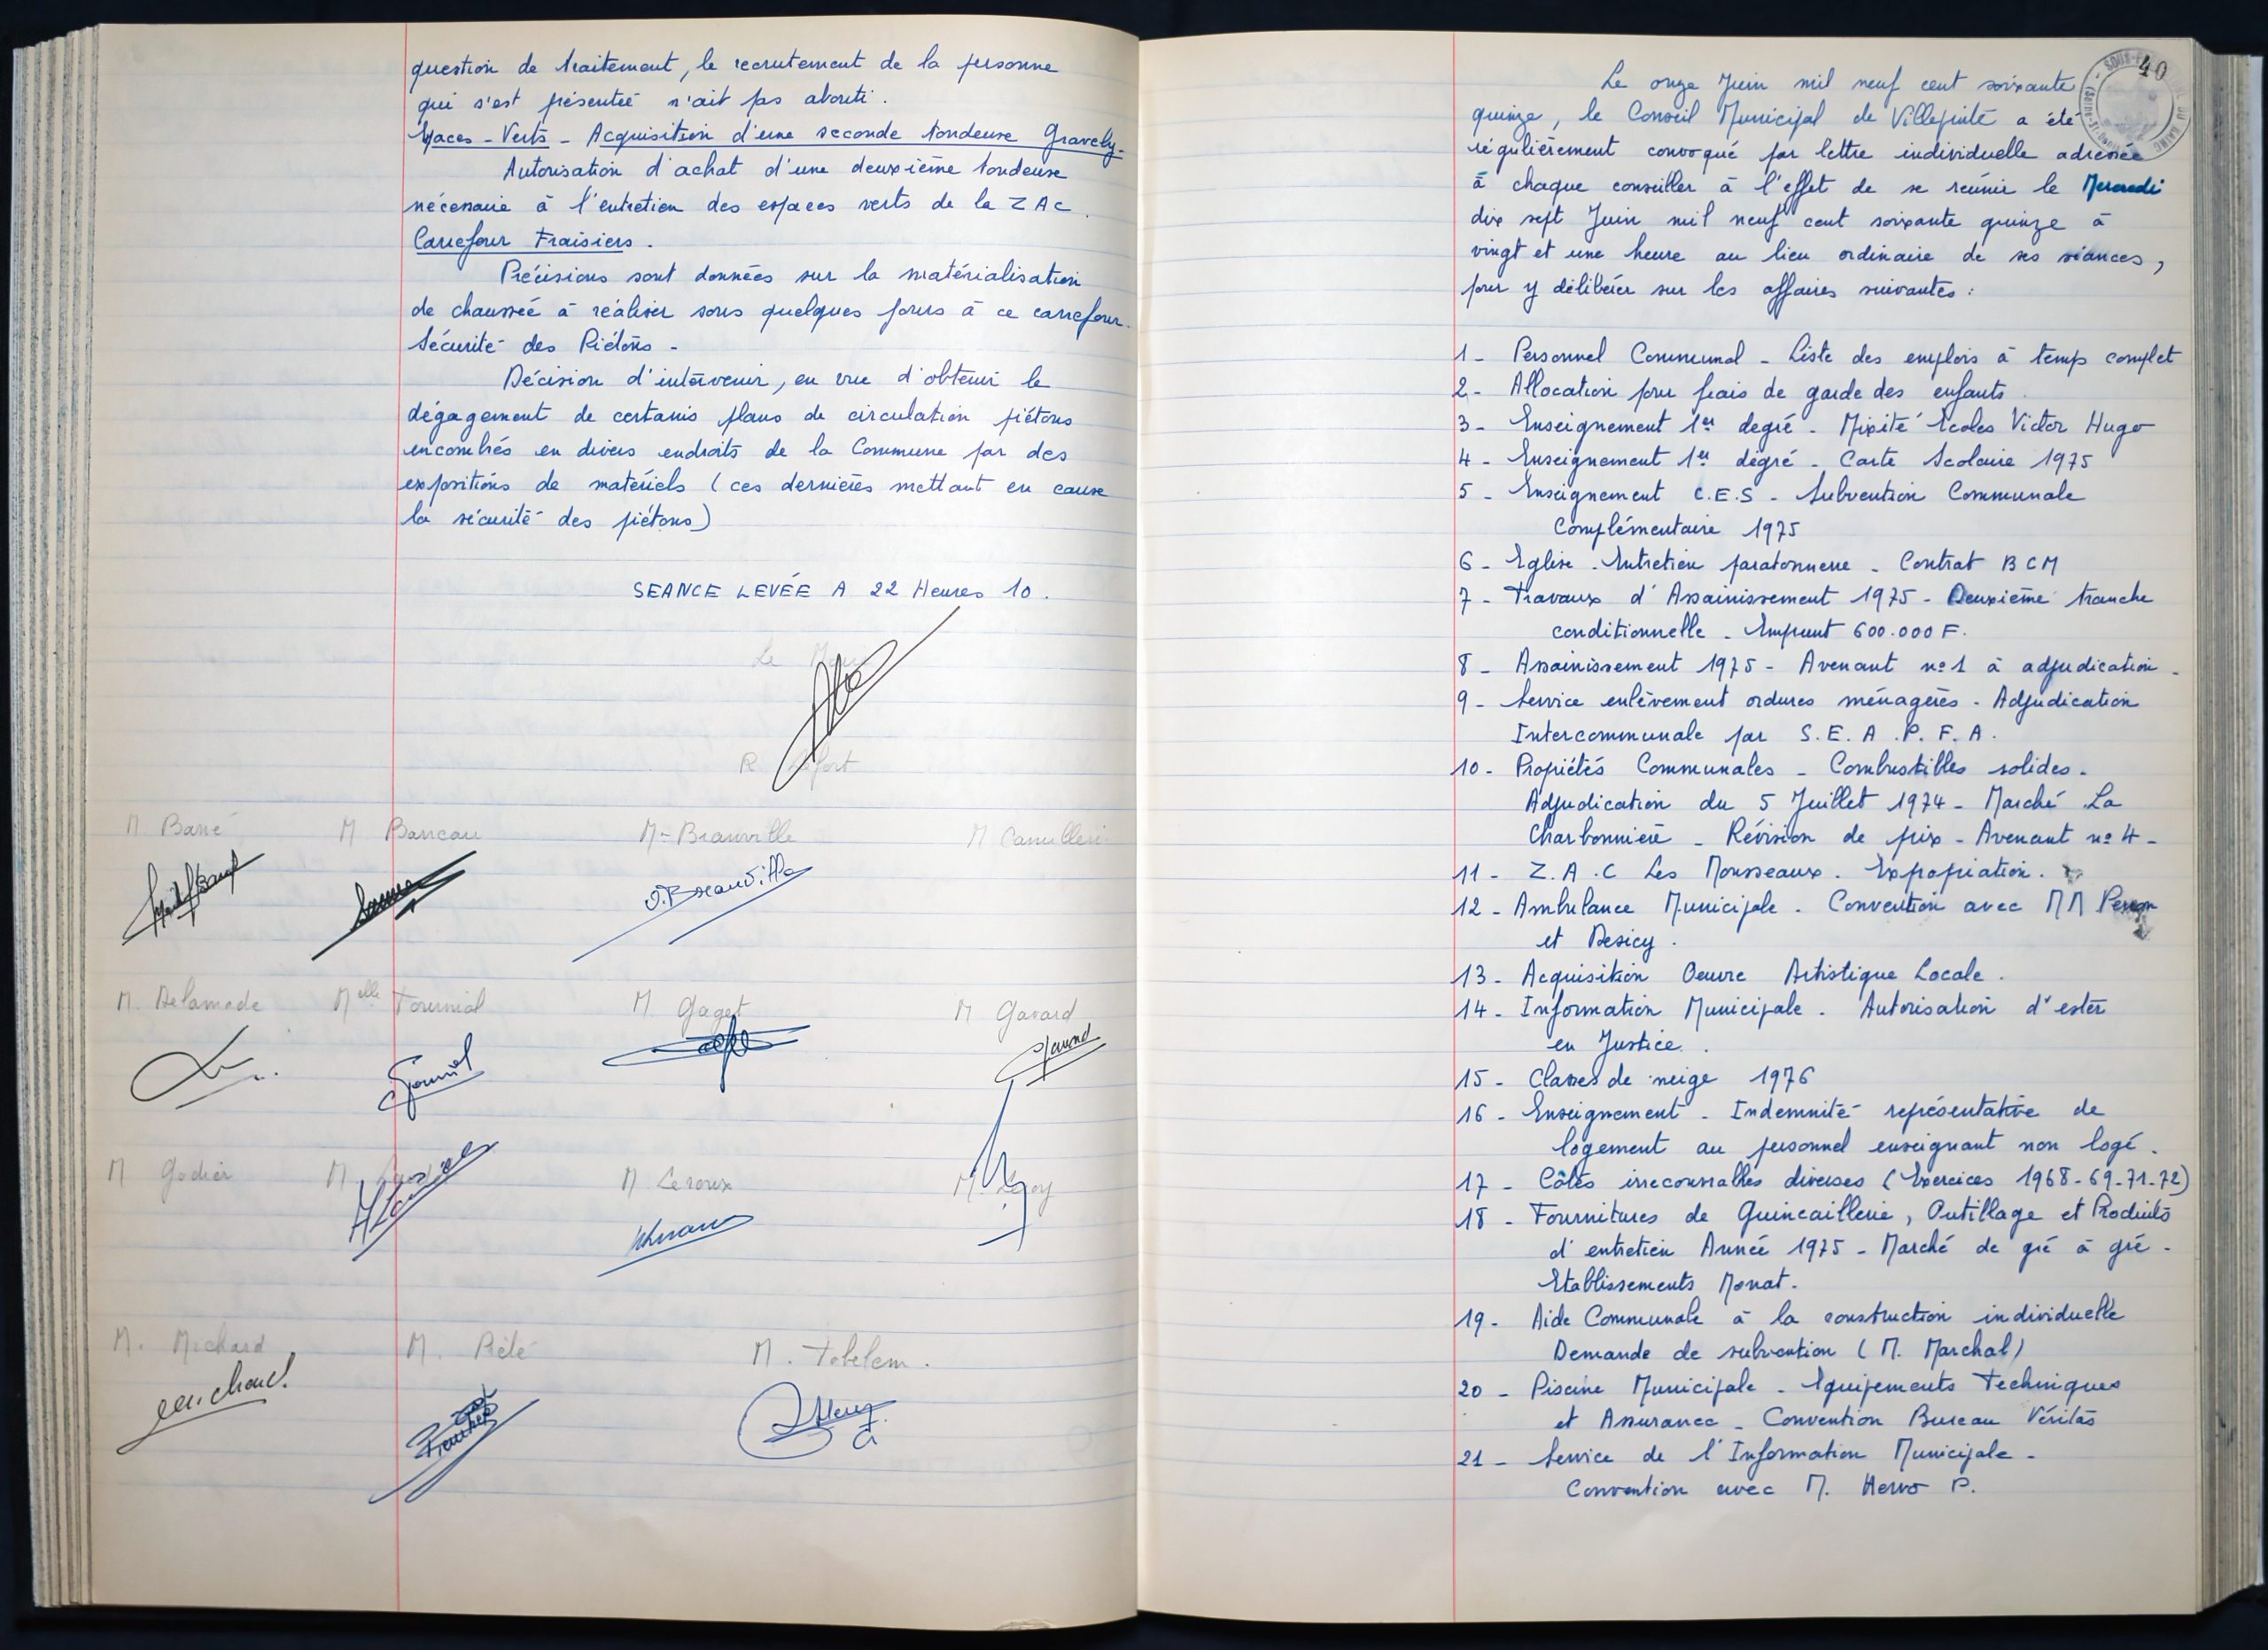 question de traitement, le recrutement de la personne
qui s'est présentée n'ait pas abouti.
Espaces - Verts - Acquisition d'une seconde tondeuse Gravely -
Autorisation d'achat d'une deuxième tondeuse
nécessaire à l'entretien des espaces verts de la ZAC.
Carrefour Fraisiers.
Précisions sont données sur la matérialisation
de chaussée à réaliser sous quelques jours à ce carrefour.
Sécurité des Piétons -
Décision d'intervenir, en vue d'obtenir le
dégagement de certains plans de circulation piétons
encombrés en divers endroits de la Commune par des
expositions de matériels (ces dernières mettant en cause
la sécurité des piétons)
SEANCE LEVÉE A 22 Heures 10.
Le Maire
R Lefort
M Barré M Barreau M - Brauville M Camilleri
O. Breauville
M. Delamade Melle Tourniol M Gaget M Gavard
M Godier M M Leroux M. Leroy
M. Michard M. Piélé M. Tobelem.
40
Le onze Juin mil neuf cent soixante
quinze, le Conseil Municipal de Villepinte a été
régulièrement convoqué par lettre individuelle adressée
à chaque conseiller à l'effet de se réunir le Mercredi
dix sept Juin mil neuf cent soixante quinze à
vingt et une heure au lieu ordinaire de ses séances,
pour y délibérer sur les affaires suivantes :
1 - Personnel Communal - Liste des emplois à temps complet
2 - Allocation pour frais de garde des enfants.
3 - Enseignement 1er degré - Mixité Ecoles Victor Hugo
4 - Enseignement 1er degré - Carte Scolaire 1975
5 - Enseignement C.E.S - Subvention Communale
Complémentaire 1975
6 - Eglise. Entretien paratonnerre - Contrat BCM
7 - Travaux d'Assainissement 1975 - Deuxième tranche
conditionnelle - Emprunt 600.000 F.
8 - Assainissement 1975 - Avenant n° 1 à adjudication -
9 - Service enlèvement ordures ménagères - Adjudication
Intercommunale par S.E.A.P.F.A.
10 - Propriétés Communales - Combustibles solides -
Adjudication du 5 Juillet 1974 - Marché La
Charbonnière - Révision de prix - Avenant n° 4 -
11 - Z.A.C Les Mousseaux. Expropriation.
12 - Ambulance Municipale. Convention avec MM Perron
et Desicy.
13 - Acquisition Oeuvre Artistique Locale.
14 - Information Municipale. Autorisation d'ester
en Justice.
15 - Classes de neige 1976
16 - Enseignement - Indemnité représentative de
logement au personnel enseignant non logé.
17 - Côtes irrecouvrables diverses (Exercices 1968-69-71-72)
18 - Fournitures de Quincaillerie, Outillage et Produits
d'entretien Année 1975 - Marché de gré à gré -
Etablissements Monat.
19 - Aide Communale à la construction individuelle
Demande de subvention (M. Marchal)
20 - Piscine Municipale - Equipements Techniques
et Assurance - Convention Bureau Véritas
21 - Service de l'Information Municipale -
Convention avec M. Hervo P.